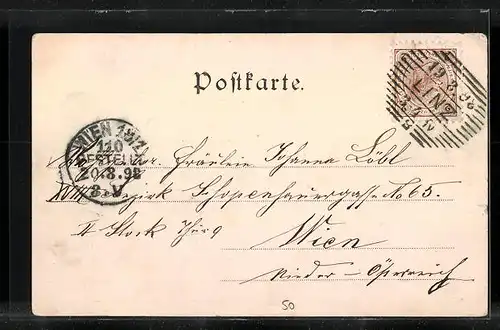 Postkarte.
19.8.98
LINZ
WIEN 18/1
110
BESTELLT
20.8.98
8.V
Fräulein Johanna Löbl
XVIII Bezirk Schopenhauergasse No 65.
II Stock Thür 9
Wien
Nieder-Österreich
50